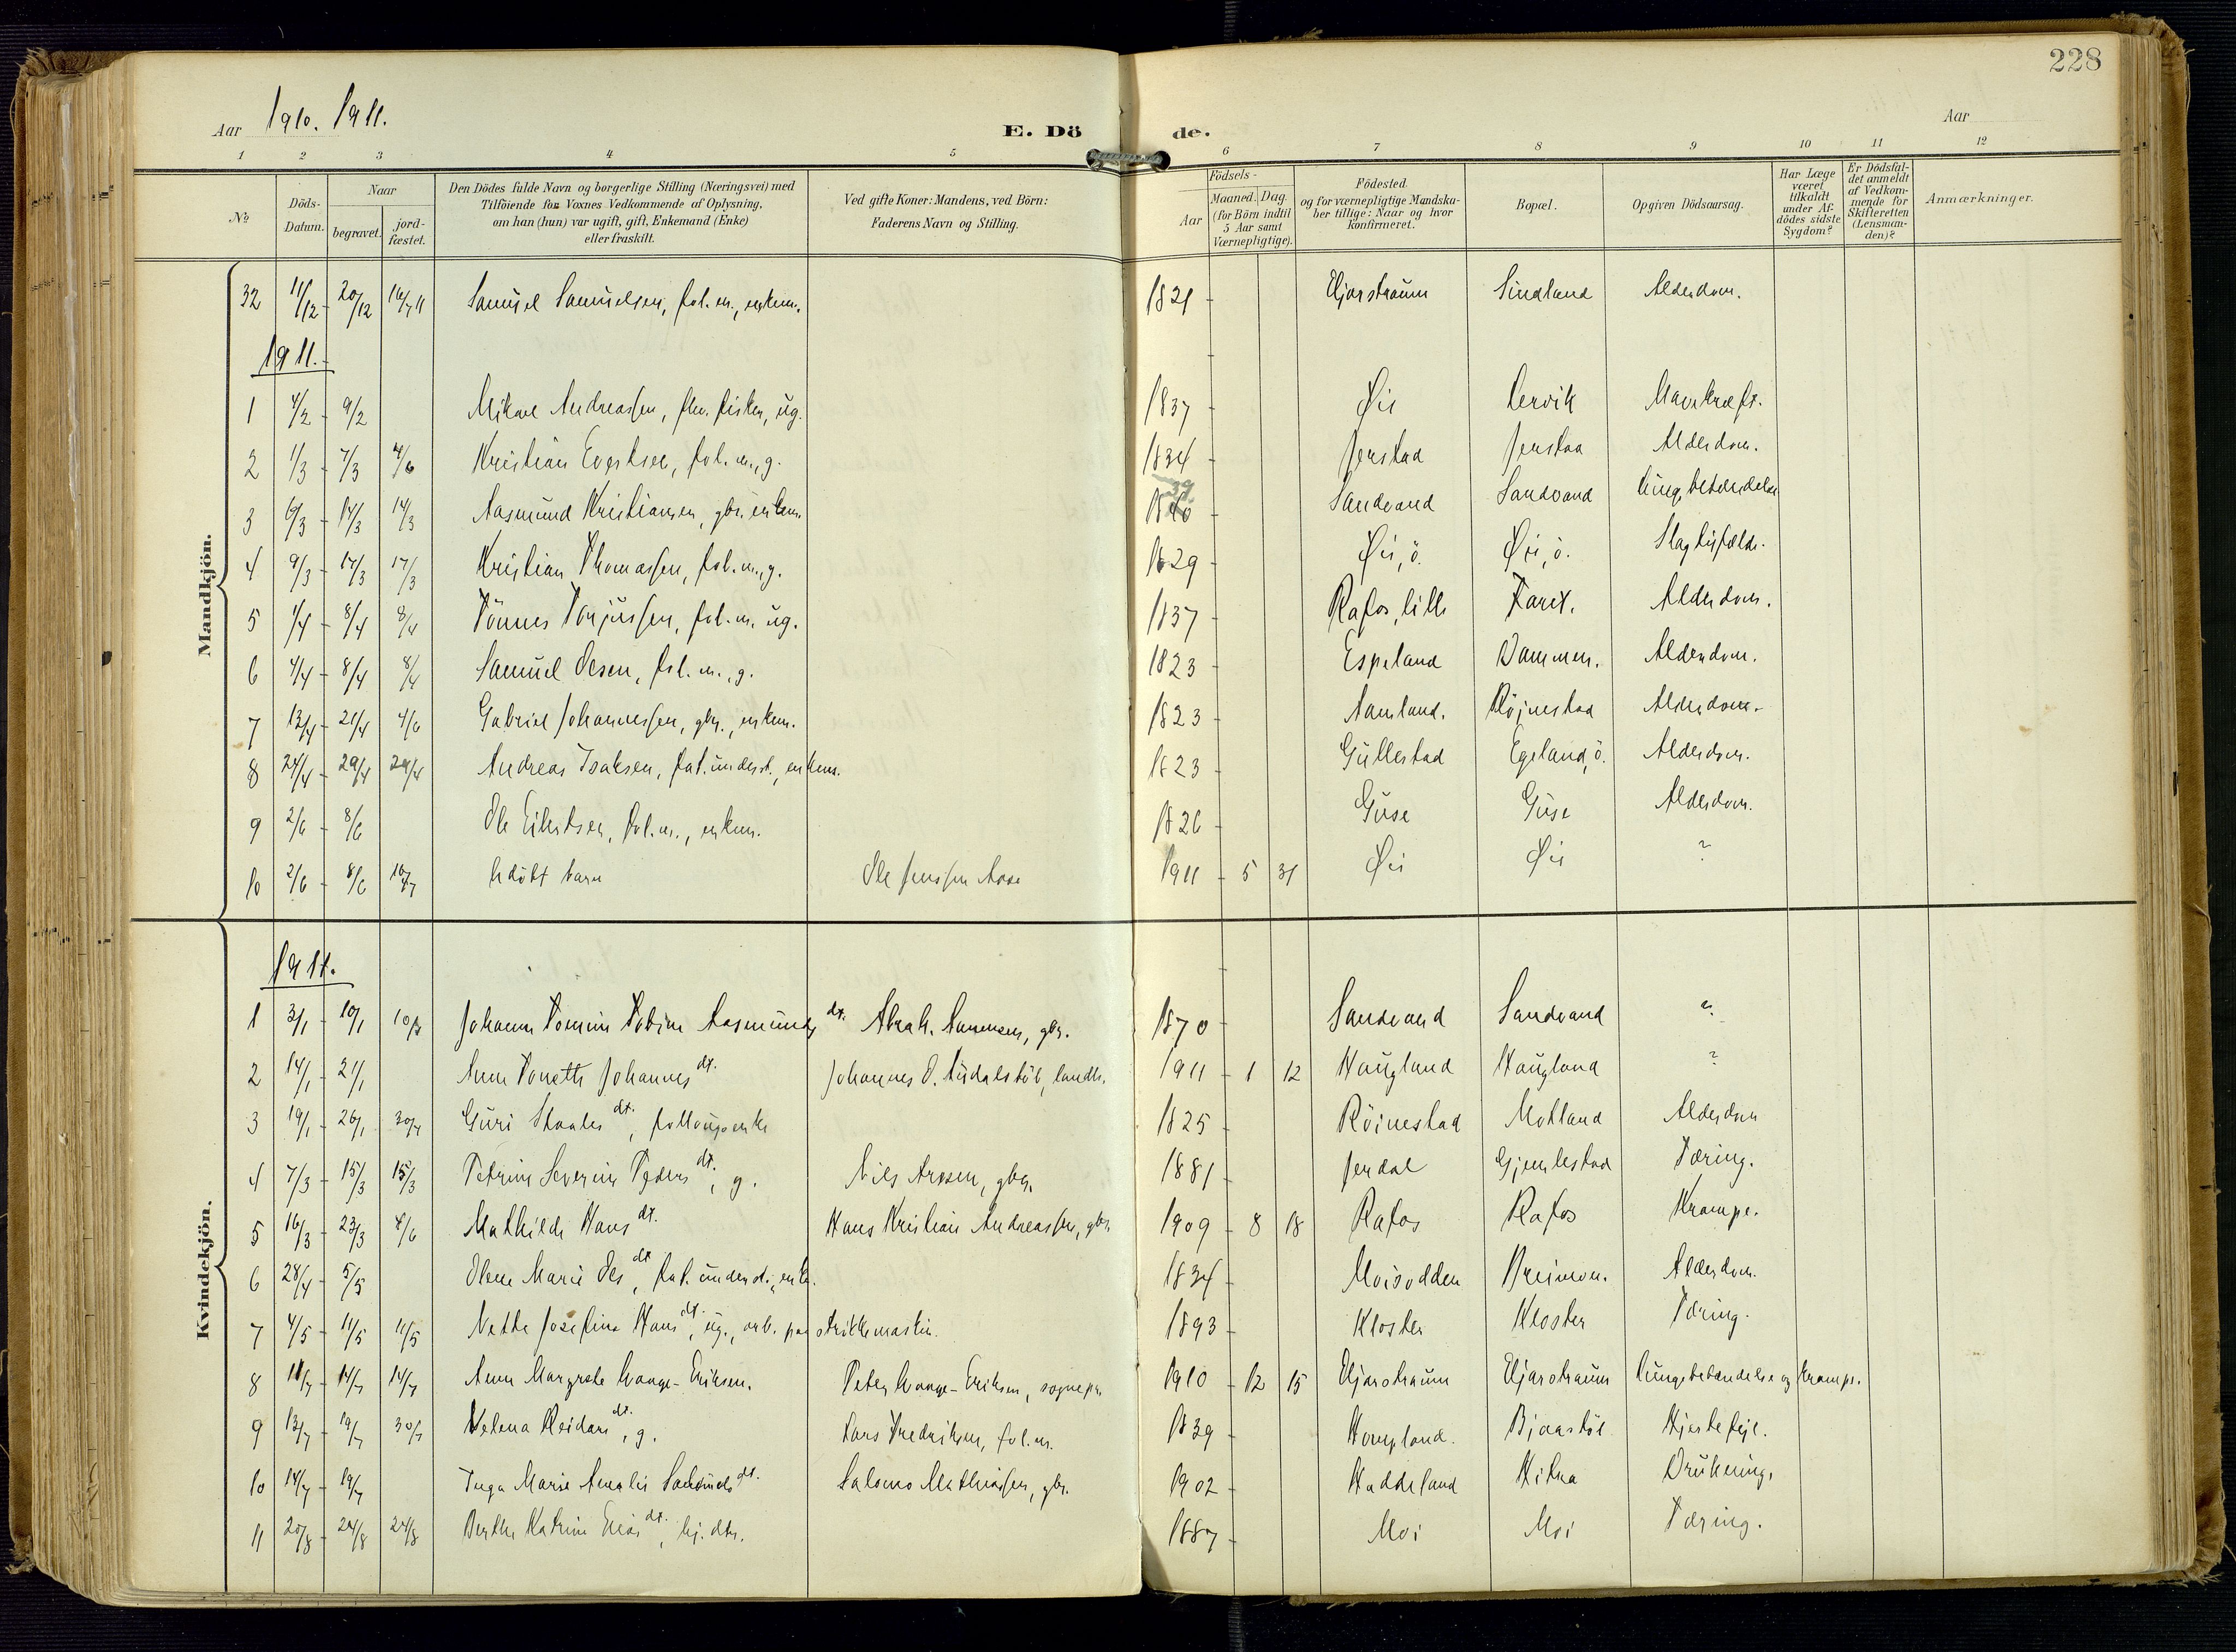 228
Aar 1910. 1911.
E. Dö
de.
Aar
1 2 3 4 5 6 7 8 9 10 11 12
No
Döds-Datum.
Naar
begravet.
jord-fæstet.
Den Dödes fulde Navn og borgerlige Stilling (Næringsvei) med
Tilföiende for Voxnes Vedkommende af Oplysning,
om han (hun) var ugift, gift, Enkemand (Enke)
eller fraskilt.
Ved gifte Koner: Mandens, ved Börn:
Faderens Navn og Stilling.
Födsels-
Aar
Maaned. Dag.
(for Börn indtil
5 Aar samt
Værnepligtige).
Födested
og for værnepligtige Mandska-
ber tillige: Naar og hvor
konfirmeret.
Bopæl.
Opgiven Dödsaarsag.
Har Læge
været
tilkaldt
under Af-
dödes sidste
Sygdom?
Er Dödsfal-
det anmeldt
af Vedkom-
mende for
Skifteretten
(Lensman-
den)?
Anmærkninger.
Mandkjön.
32 11/12 20/12 16/7 11 Samuel Samuelsen, fol. m., enkem. 1821 Eljarstraum Sindland Alderdom.
1911.
1 4/2 9/2 Mikael Andreassen, fisker, ug. 1837 Øie Lervik Mavekræft.
2 1/3 7/3 4/6 Kristian Evertsen, fol. m., g. 1834 Jerstad Jerstad Alderdom.
3 6/3 14/3 14/3 Aasmund Kristiansen, gbr. enkem. 1840 39 Sandvand Sandvand Lungebetændelse
4 9/3 17/3 17/3 Kristian Thomassen, fol. m., g. 1829 Øie, ö. Øie, ö. Slagtilfælde.
5 1/4 8/4 8/4 Tönnes Torjussen, fol. m. ug. 1837 Rafos, lille Faret. Alderdom.
6 4/4 8/4 8/4 Samuel Olsen, fol. m., g. 1823 Espeland Dammen. Alderdom.
7 13/4 21/4 4/6 Gabriel Johannessen, gbr., enkem. 1823 Aamland. Röinestad Alderdom.
8 24/4 29/4 29/4 Andreas Isaksen, fat. underst., enkem. 1823 Gullestad Egeland, ö. Alderdom.
9 2/6 8/6 Ole Eilertsen, fol. m., enkem. 1826 Guse Guse Alderdom.
10 2/6 8/6 16/7 Udöbt barn Ole Jenssen Aase 1911 5 31 Øie Øie ?
Kvindekjön.
1911.
1 3/1 10/1 10/1 Johanne Tomine Tobine Aasmunds dt. Abrah. Aanensen, gbr. 1870 Sandvand Sandvand ?
2 14/1 21/1 Anne Tonette Johannes dt. Johannes O. landh. 1911 1 12 Haugland Haugland ?
3 19/1 26/1 30/4 Guri Staales dt., follougsenke 1825 Röinestad Motland Alderdom
4 7/3 15/3 15/3 Petrine Severine Peders dt., g. Nils Arosen, gbr. 1881 Jerdal Gjemlestad Tæring.
5 16/3 23/3 4/6 Mathilde Hans dt. Hans Kristian Andreassen, gbr. 1909 8 18 Rafos Rafos Krampe.
6 28/4 5/5 Olene Marie Ols dt., fat. underst., enke. 1834 Moisodden Breimon. Alderdom.
7 4/5 11/5 11/5 Nette Josefine Hans dt., ug., arb. paa strikkemaskin. 1893 Kloster Kloster Tæring.
8 11/7 14/7 14/7 Anne Margrete Waage-Eriksen. Peter Waage-Eriksen, sognepr. 1910 12 15 Eljarstraum Eljarstraum Lungebetændelse og krampe.
9 13/7 19/7 30/7 Helena Reidars dt., g. Lars Fredriksen, fol. m. 1839 Hompland. Bjaastöl Hjertefeil.
10 14/7 19/7 Inga Marie Amalie Salomos dt. Salomo Mathiassen, gbr. 1902 Haddeland Hitna Drukning.
11 20/8 24/8 24/8 Berthe Katrine Elias dt., hj. dtr. 1887 Moi Moi Tæring.